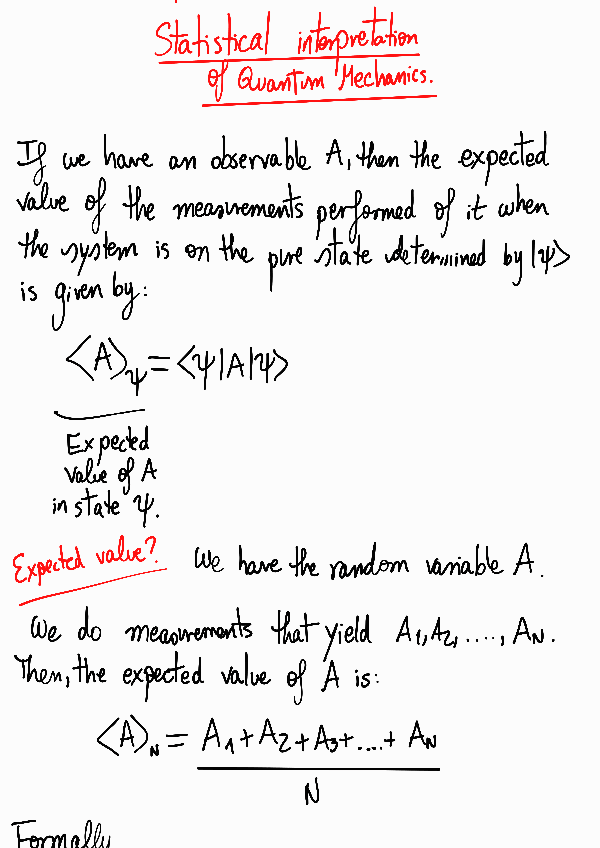 Statistical interpretation
of Quantum Mechanics.
If we have an observable A, then the expected
value of the measurements performed of it when
the system is on the pure state determined by |ψ>
is given by:
<A>ψ = <ψ|A|ψ>
Expected
value of A
in state ψ.
Expected value? We have the random variable A.
We do measurements that yield A1, A2, ...., AN.
Then, the expected value of A is:
<A>N = A1 + A2 + A3 + .... + AN
N
Formally